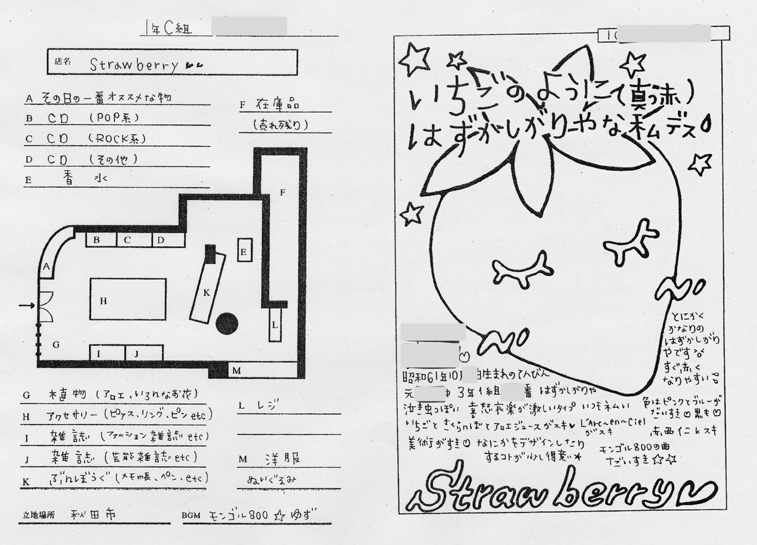 1年C組
店名 Strawberry
A その日の一番オススメな物
B CD (POP系)
C CD (ROCK系)
D CD (その他)
E 香水
F 在庫品
(売れ残り)
F
A
B C D
E
K
H
L
G
I J
M
G 植物 (アロエ、いろんなお花)
H アクセサリー (ピアス、リング、ピン etc)
I 雑誌 (ファッション雑誌 etc)
J 雑誌 (芸能雑誌 etc)
K ぶんぼうぐ (メモ帳、ペン、etc)
L レジ
M 洋服
ぬいぐるみ
立地場所 秋田市
BGM モンゴル800☆ゆず
いちごのように(真っ赤)
はずかしがりーやな私デス
とにかく
かなりの
はずかしがり
やですな
すぐ赤く
なりやすい
昭和61年10 生まれのてんびん
元 中 3年1組 番 はずかしがりや
泣き虫っぽい 喜怒哀楽が激しいタイプ いつもネムい
いちごとさくらんぼとアロエジュースがスキ
L'Arc〜en〜Ciel
がスキ
美術がすき なにかをデザインしたり
するコトが少し得意★
色はピンクとブルーが
だいすき 黒も
赤西仁もスキ
モンゴル800の曲
だいすき☆☆
Strawberry